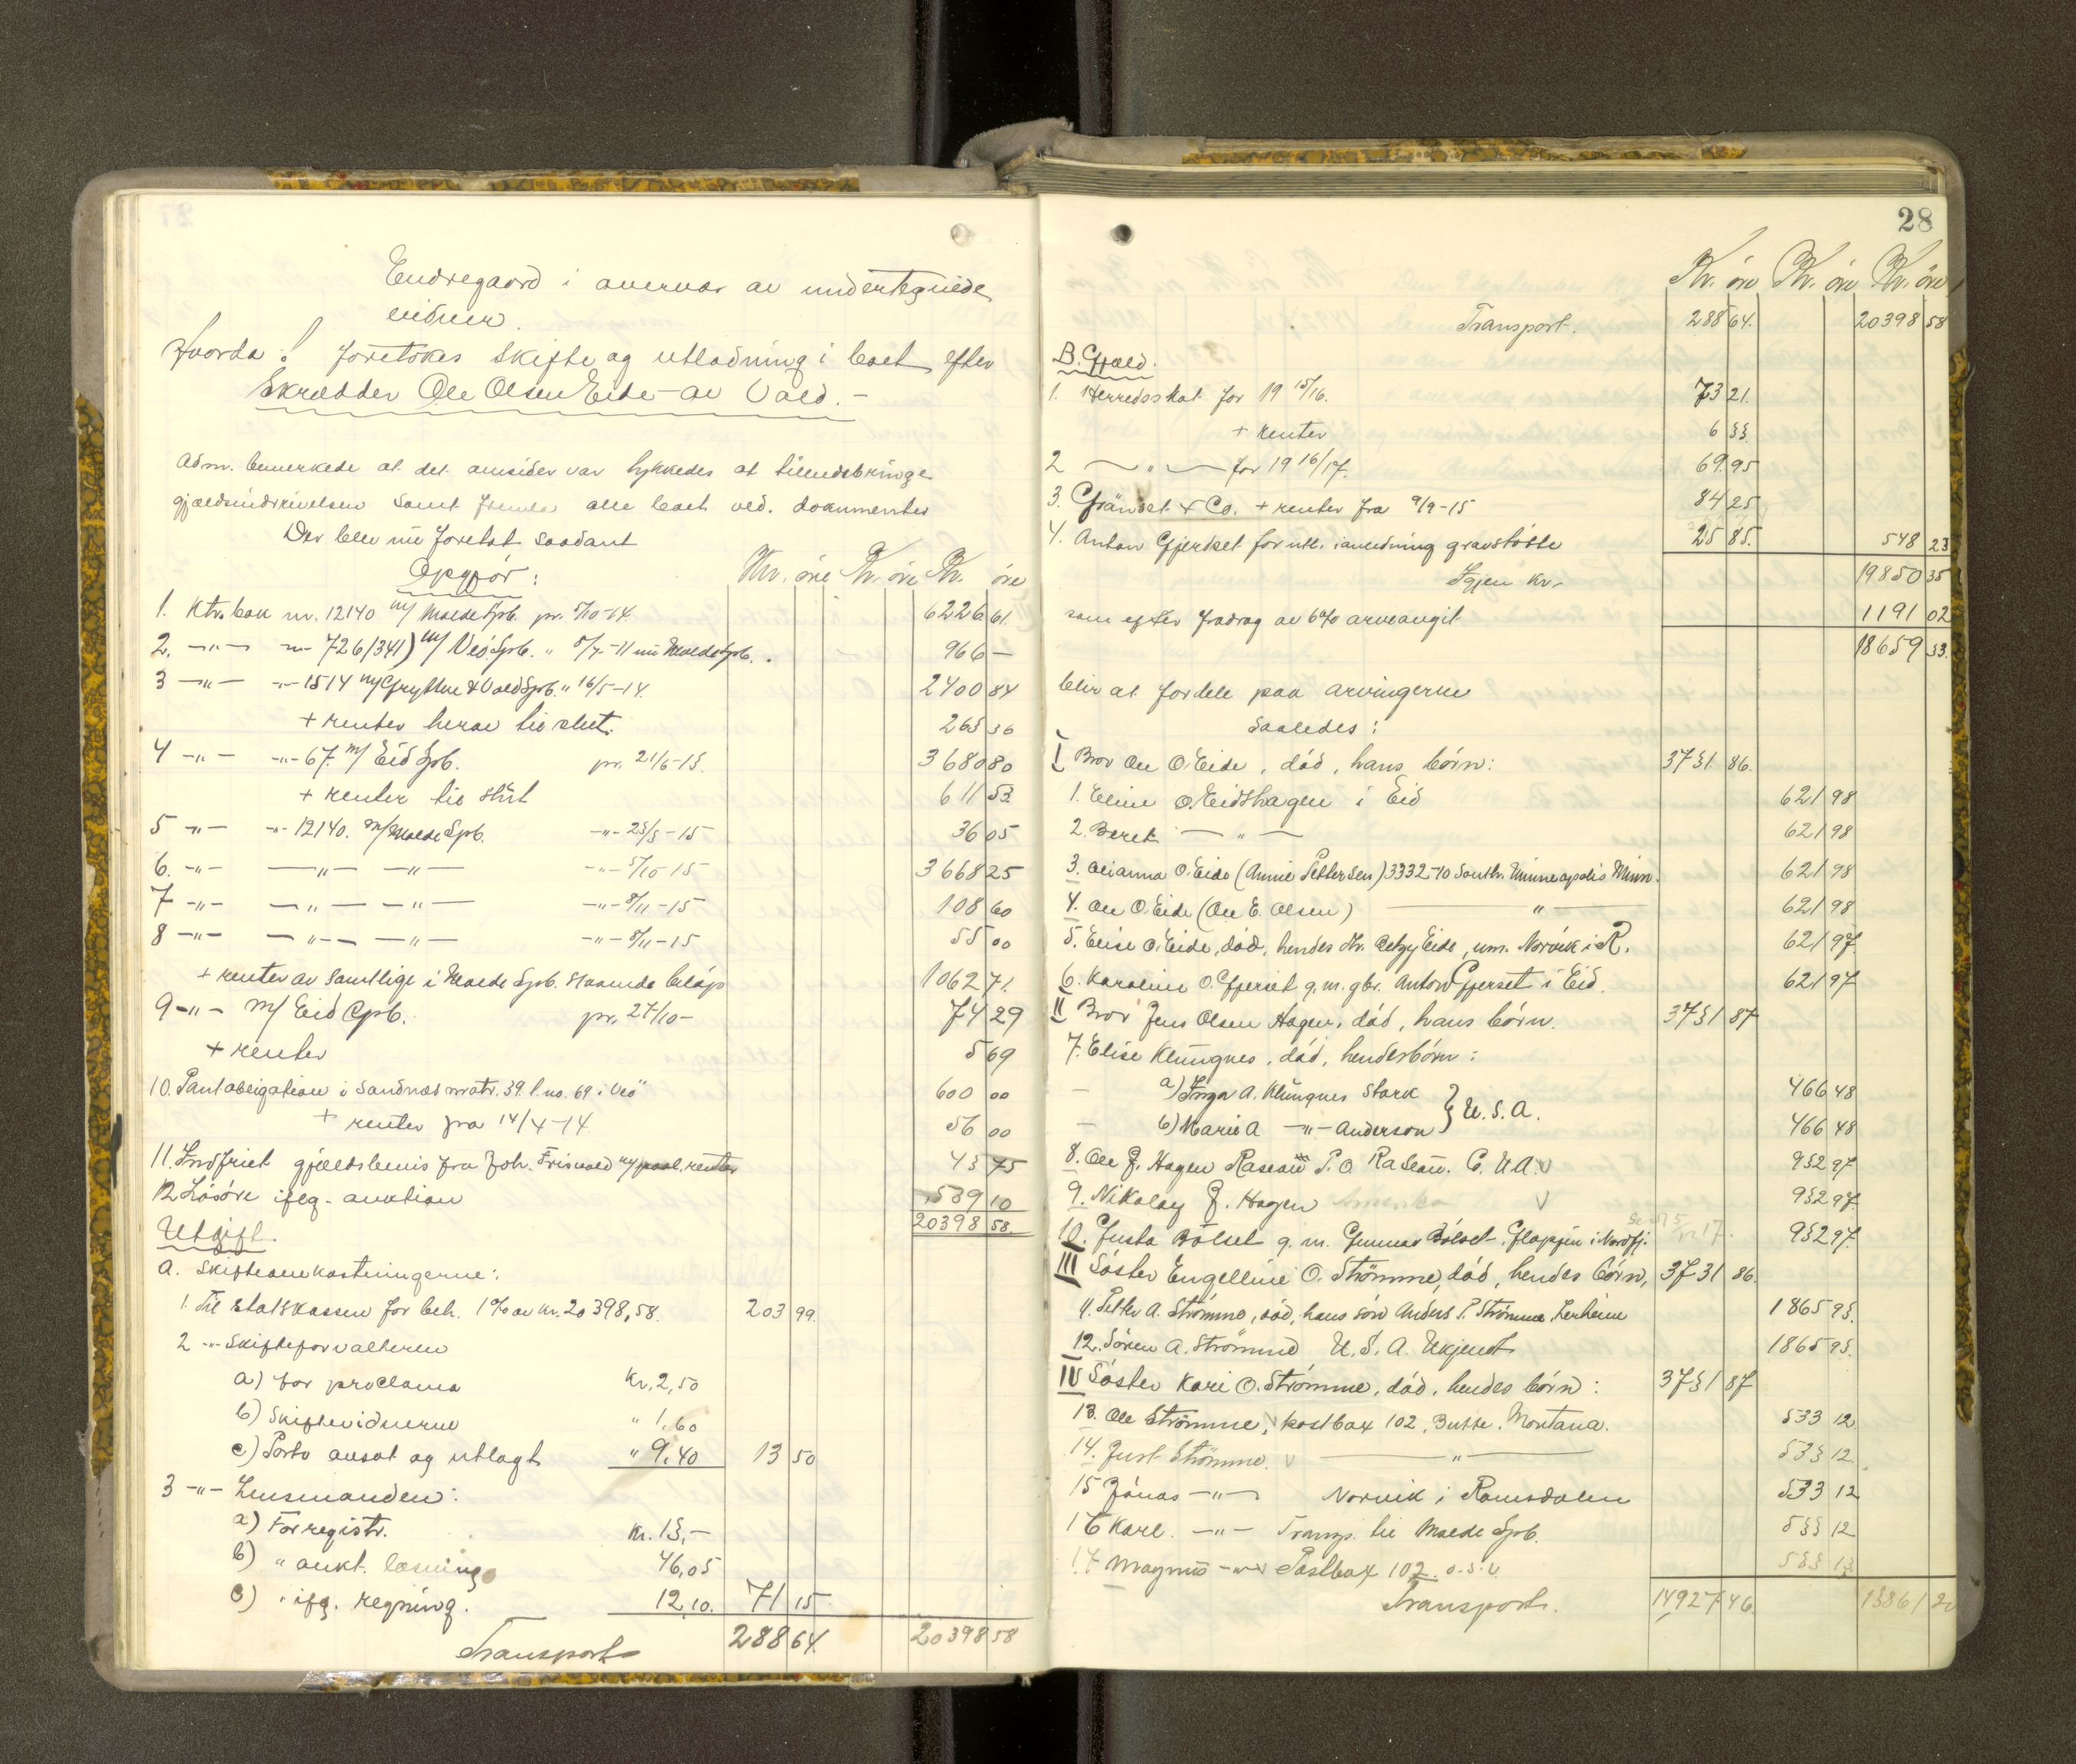 Endregaard i overvær av undertegnede
vidner.
Hvorda: foretokes skifte og utlodning i boet efter
Skrædder Ole Olsen Eide av Vold.-
Adm. bemerkede at det omsider var lykkedes at tilendebringe
gjældsinddrivelsen samt fremla alle boet ved. dokumenter
Der blev nu foretat saadant
Opgjør:
Kr. øre Kr. øre Kr. øre
1. Ktr.bok nr. 12140 m/ Molde Spb. pr. 5/10-14. 6226 61.
2. -"- -"- 726/341) m/ Veø Spb. " 5/7-11 nu Molde Spb. 966 -
3 -"- -"- 1514 m/ Grytten & Vold Spb. " 16/5-14. 2400 84
+ renter herav til slut. 265 36
4 -"- -"- 67. m/ Eid Spb. pr. 21/6-13. 3680 80
+ renter til slut 611 53
5 -"- -"- 12140. m/ Molde Spb. -"- 23/3-15 36 05
6. -"- -"- -"- -"- 5/10-15 3668 25
7 -"- -"- -"- -"- 8/11-15 108 60
8 -"- -"- -"- -"- 8/11-15 55 00
+ renter av samtlige i Molde Spb. staaende beløp 1062 71.
9 -"- m/ Eid Spb. pr. 27/10- 74 29
+ renter 5 69
10. Pantobligation i Sandnes matr. 39. l.no. 69 i Veø 600 00
+ renter fra 14/4-14 56 00
11. Indfriet gjældsbevis fra Joh. Frisvold m/ paal. renter 43 75
12 Løsøre ifølg. auktion 539 10
20398 58.
Utgift.
A. Skifteomkostningerne:
1. Til statskassen for beh. 1% av kr. 20398,58. 203 99.
2 -"- Skifteforvalteren
a) for proclama Kr. 2,50
b) Skiftevidnerne " 1,60
c) Porto ansat og utlagt " 9,40 13 50
3 -"- Lensmanden:
a) For registr. Kr. 13,-
b) " aukt. læsning 46,05
c) " ifg. regning. 12,10. 71 15
Transport 288 64. 20398 58
28
Kr. øre Kr. øre Kr. øre
Transport. 288 64. 20398 58
B. Gjæld.
1. Herredsskat for 19 15/16. 73 21.
+ renter 6 33.
2 -"- for 19 16/17. 69. 95
3. Grändet & Co. + renter fra 9/9-15 84 25
4. Anton Gjerdset for utl. i anledning gravstøtte 25 85. 548 23
Igjen kr. 19850 35
som efter fradrag av 6% arveavgit 1191 02
18659 33.
blir at fordele paa arvingerne
saaledes:
I Bror Ole O. Eide, død, hans børn: 3731 86.
1. Eline O. Eidshagen i Eid 621 98
2. Beret -"- 621 98
3. Olianna O. Eide (Annie Pettersen) 3332-10 South. Minneapolis Minn. 621 98
4. Ole O. Eide (Ole E. Olsen) -"- 621 98
5. Elise O. Eide, død, hendes dtr. Betzy Eide, um. Norvik i R. 621 97.
6. Karoline O. Gjerset g.m. gbr. Anton Gjerset i Eid. 621 97
II Bror Jens Olsen Hagen, død, hans børn. 3731 87
7. Elise Klungnes, død, hendes børn:
a) Inga A. Klungnes Stark } U.S.A. 466 48
b) Marie A -"- Anderson 466 48
8. Ole J. Hagen Raseau P.O. Raseau. C. U.A. V 932 97
9. Nikolay J. Hagen Amerika V 932 97
10. Justa Bolset g.m. Gunnar Bolset, Gloppen i Nordfj. 932 97.
III Søster Engelline O. Strømme, død, hendes børn, 3731 86.
11. Petter A. Strømme, død, hans søn Anders P. Strømme, Lerheim 1865 93.
12. Søren A. Strømme U.S.A. Ukjendt 1865 93.
IV Søster Kari O. Strømme, død, hendes børn: 3731 87
13. Ole Strømme, V Postbox 102, Butte. Montana. 533 12
14. Just Strømme. V -"- 533 12
15 Jonas -"- Norvik i Romsdalen 533 12
16 Karl. -"- Transp. til Molde Spb. 533 12
17 Magnus -"- V Postbox 102 o.s.v. 533 13
Transport. 14927 46. 13861 20